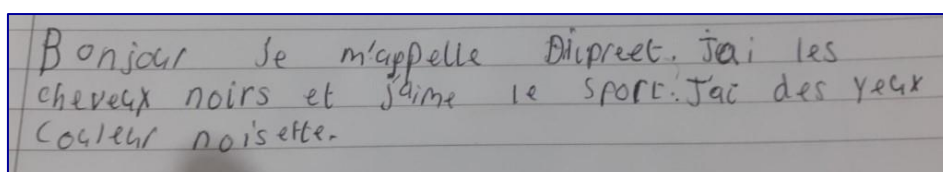 Bonjour Je m'appelle Dilpreet. Jai les
cheveux noirs et j'aime le sport. J'ai des yeux
couleur noisette.